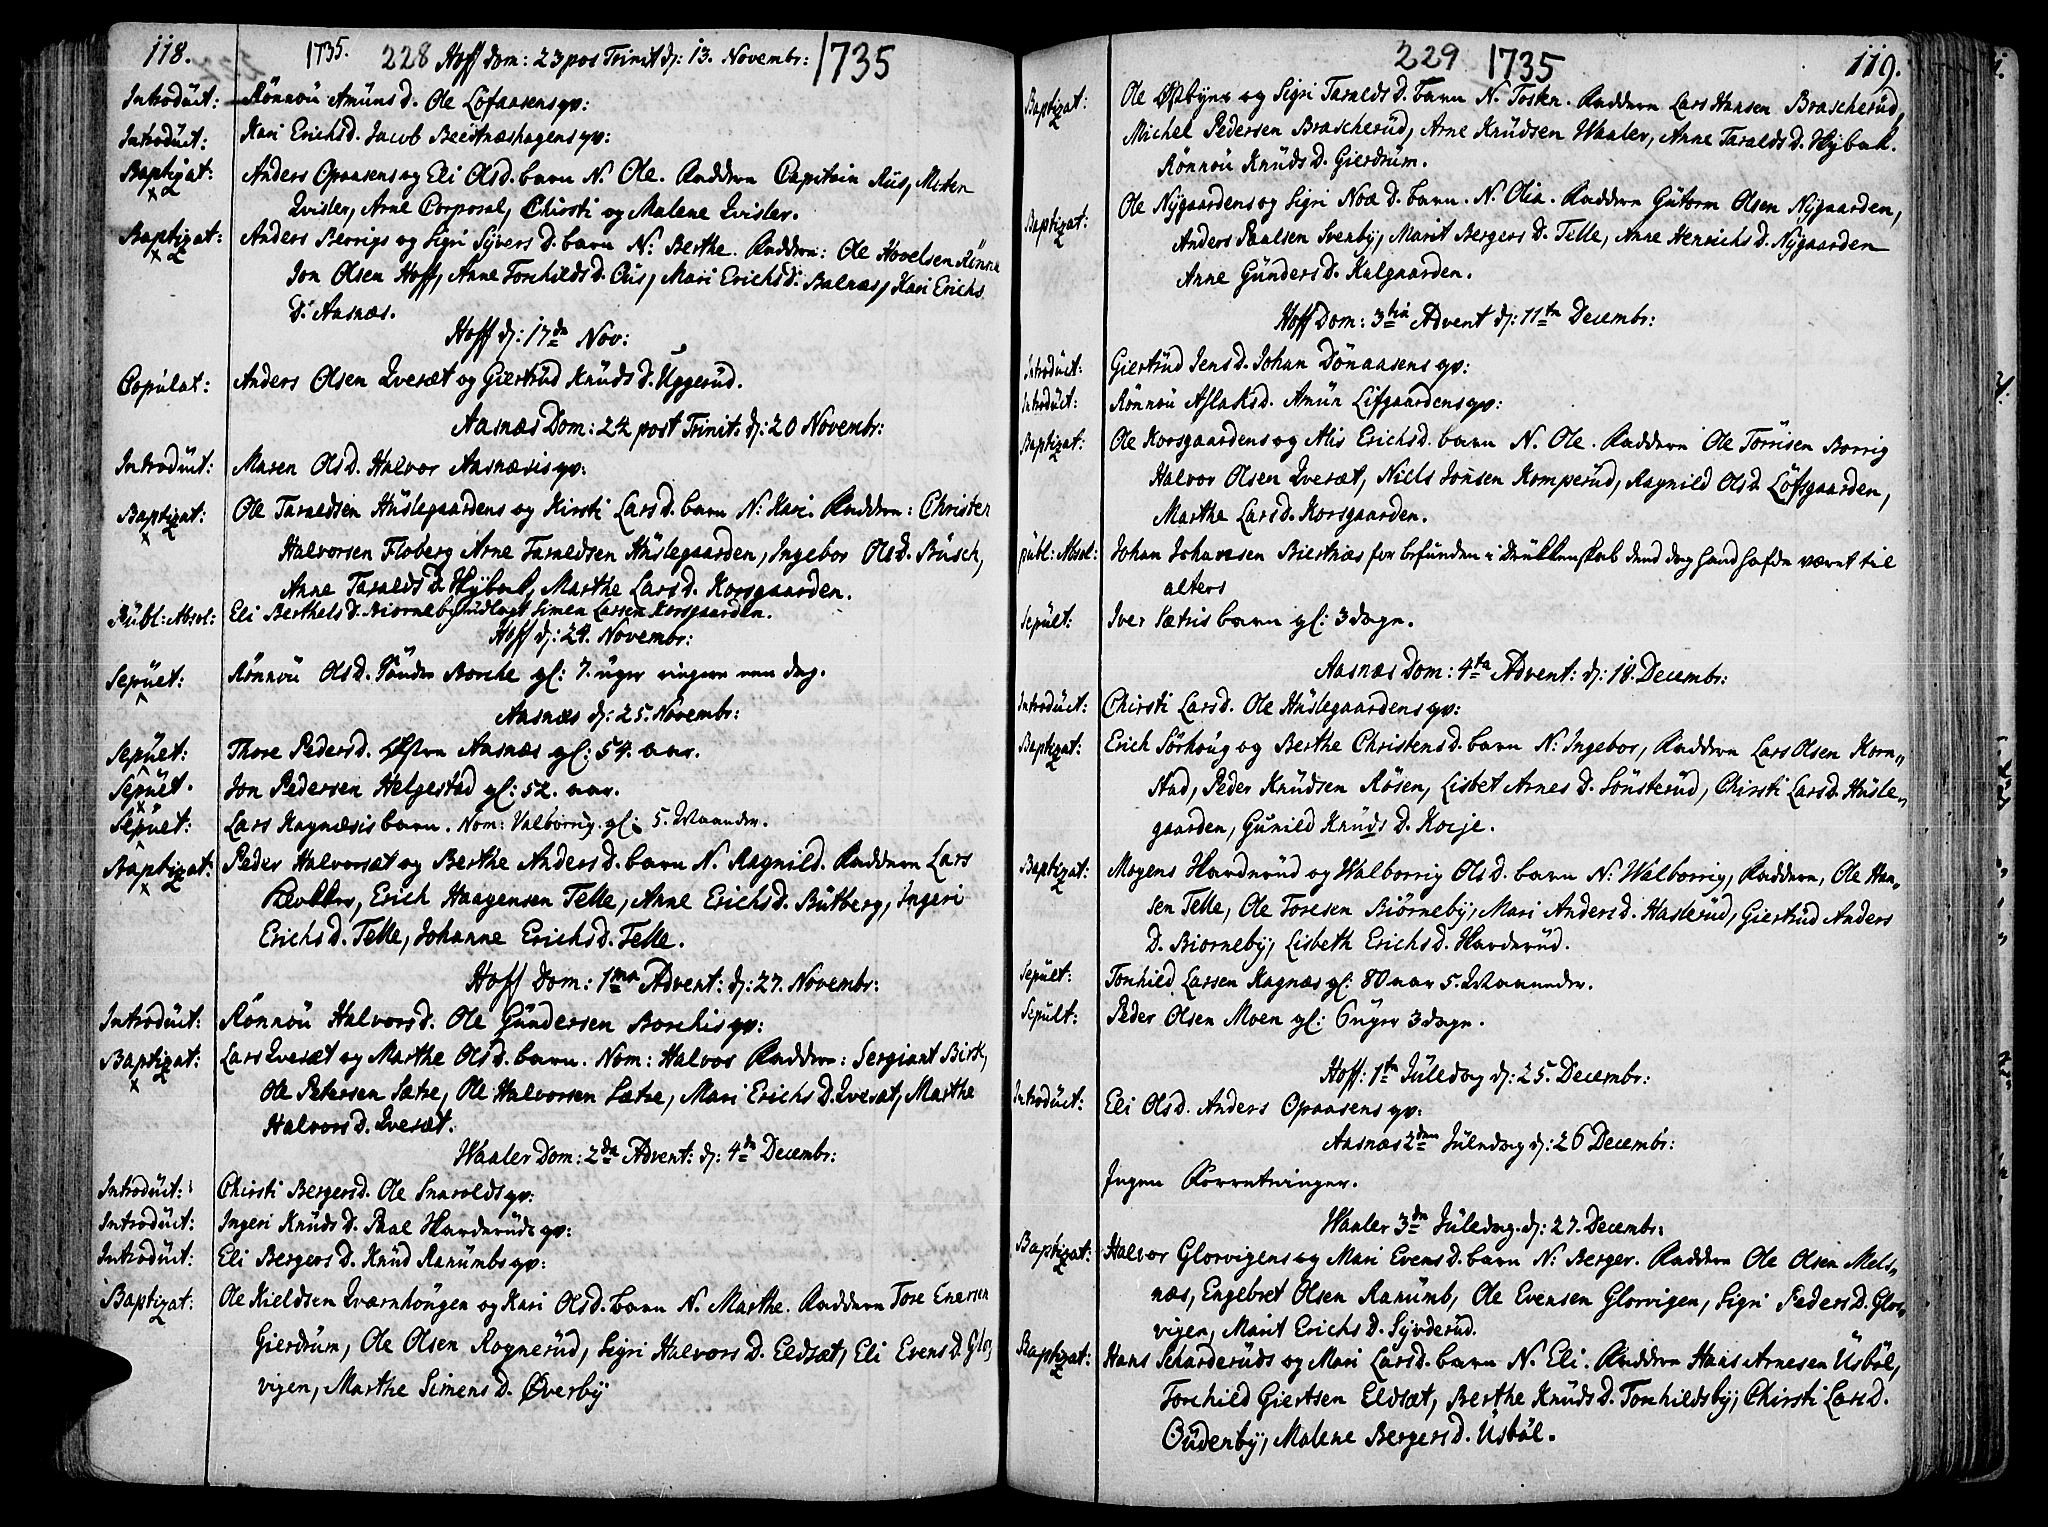 118. 1735. 228 Hoff Dom: 23 pos Trinit d: 13. Novembr: 1735
Introduct: Rönnou Amunsd. Ole Lofaasens qv:
Introduct: Kari Erichsd. Jacob Beestnæshagens qv:
Baptizat: Anders Opaasens og Eli Olsd. barn N. Ole. Faddern Capitain Rus, Mester
Qvisler, Arne Corporal, Chirsti og Malene Qvisler.
Baptizat: Anders Berrigs og Sigri Syvers D. barn N: Berthe. Faddern: Ole Hovelsen Rönne
Jon Olsen Hoff, Anne Torchildsd. Ous, Mari Erichsd: Balnæs, Kari Erichs
D: Aasnæs.
Hoff d: 17de Nov:
Copulat: Anders Olsen Qvesæt og Giertrud Knudsd. Uggerud.
Aasnæs Dom: 24 post Trinit: d: 20 Novembr:
Introduct: Maren Olsd. Halvor Aasnæsis qv:
Baptizat: Ole Taraldsen Huslegaardens og Kirsti Larsd. barn N: Kari. Faddern: Christen
Halvorsen Floberg Arne Taraldsen Huslegaarden, Ingebor Olsd. Busch,
Anne Taraldsd. Hÿbak, Marthe Larsd. Korsgaarden.
Publ: Absol: Eli Berthelsd. Biorneby udlagt Simen Larsen Korsgaarden.
Hoff d: 24. Novembr:
Sepult: Rönnou Olsd. Sönder Borche gl: 7. uger ringere een dag.
Aasnæs d: 25. Novembr:
Sepult: Thore Pedersd. Østre Aasnæs gl: 54. aar.
Sepult. Jon Pedersen Helgestad gl: 52. aar.
Sepult: Lars Kagnæsis barn. Nom: Valborrig. gl: 5. Maaneder.
Baptizat: Peder Halvorsæt og Berthe Andersd. barn N. Ragnild. Faddern Lars
Erich Haagensen Telle, Anne Erichsd. Butberg, Ingeri
Erichsd. Telle, Johanne Erichsd. Telle.
Hoff Dom: 1ma Advent: d: 27. Novembr:
Introduct: Rönnou Halvorsd: Ole Gundersen Borchis qv:
Baptizat: Lars Qvesæt og Marthe Olsd. barn. Nom: Halvor Faddern: Sergiant Birk,
Ole Petersen Sætre, Ole Halvorsen Sætre, Mari Erichs D. Qvesæt, Marthe
Halvorsd. Qvesæt.
Waaler Dom: 2da Advent: d: 4de Decembr:
Introduct: Chirsti Bergersd. Ole Snarolds qv:
Introduct: Ingeri Knuds D. Paal Harderuds qv:
Introduct: Eli Bergers D. Knud Ranumbs qv:
Baptizat: Ole Kieldsen Qværnhougen og Kari Olsd. barn N. Marthe. Faddern Tore Enersen
Gierdrum, Ole Olsen Rognerud, Sigri Halvors D. Eldsæt, Eli Evens D. Glor
vigen, Marthe Simens D. Øverby
229 1735 119.
Baptizat: Ole Østbyns og Sigri Taralds D. barn N. Tosten. Faddern Lars Hansen Brascherud,
Michel Pedersen Brascherud, Arne Knudsen Waaler, Anne Taralds D. Hÿbak.
Rönnou Knuds D. Gierdrum.
Baptizat: Ole Nygaardens og Sigri Noæ D. barn. N. Olia. Faddern Gutorm Olsen Nygaarden,
Anders Paalsen Svenby, Marit Bergers D. Telle, Anne Henrichsd. Nygaarden
Anne Gundersd. Kalgaarden.
Hoff Dom: 3tia Advent d: 11te Decembr:
Introduct: Giertrud Jensd. Johan Dönaasens qv:
Introduct: Rönnou Aslaksd. Amun Lifgaardens qv:
Baptizat: Ole Korsgaardens og Alis Erichsd. barn N. Ole. Faddern Ole Torrisen Borrig
Halvor Olsen Qvesæt, Niels Jonsen Komperud, Ragnild Olsd. Löfsgaarden,
Marthe Larsd. Korsgaarden.
publ: Absol: Johan Johansen Biestnæs for befunden i Drukkenskab dend dag hand hafde været til
alters
Sepult: Iver Sætris barn gl: 3 dage.
Aasnæs Dom: 4ta Advent: d: 18. Decembr:
Introduct: Chirsti Larsd. Ole Huslegaardens qv:
Baptizat: Erich Sörhoug og Berthe Christensd. barn N: Ingebor, Faddern Lars Olsen Korn„
stad, Peder Knudsen Rosen, Lisbet Arnes D. Sönsterud, Chirsti Larsd. Husle„
gaarden, Gunild Knuds D. Koeje.
Baptizat: Mogens Harderud og Walborrig Olsd. barn N: Walborrig, Faddern, Ole Han„
sen Telle, Ole Toresen Biörneby, Mari Andersd. Haslerud, Giertrud Anders
D. Biorneby, Lisbeth Erichsd. Harderud.
Sepult: Torchild Larsen Kagnæs gl: 80 aar 5. Maaneder.
Sepult: Peder Olsen Moen gl: 6 uger 3 dage.
Hoff: 1te Juledag d: 25. Decembr:
Introduct: Eli Olsd. Anders Opaasens qv:
Aasnæs 2den Juledag d: 26 Decembr:
Ingen Forretninger.
Waaler 3de Juledag. d: 27. Decembr:
Baptizat: Halvor Glorvigens og Mari Evens D. barn N: Berger. Faddern Ole Olsen Mels„
næs, Engebret Olsen Ranumb, Ole Evensen Glorvigen, Sigri Peders D. Glor„
vigen, Marit Erichs D. Syvderud.
Baptizat: Hans Scharderuds og Mari Larsd. barn N. Eli. Faddern Hans Arnesen Usböl,
Torchild Giertsen Eldsæt, Berthe Knuds D. Torchildsby, Chirsti Larsd.
Oudenby, Malene Bergersd. Usböl.